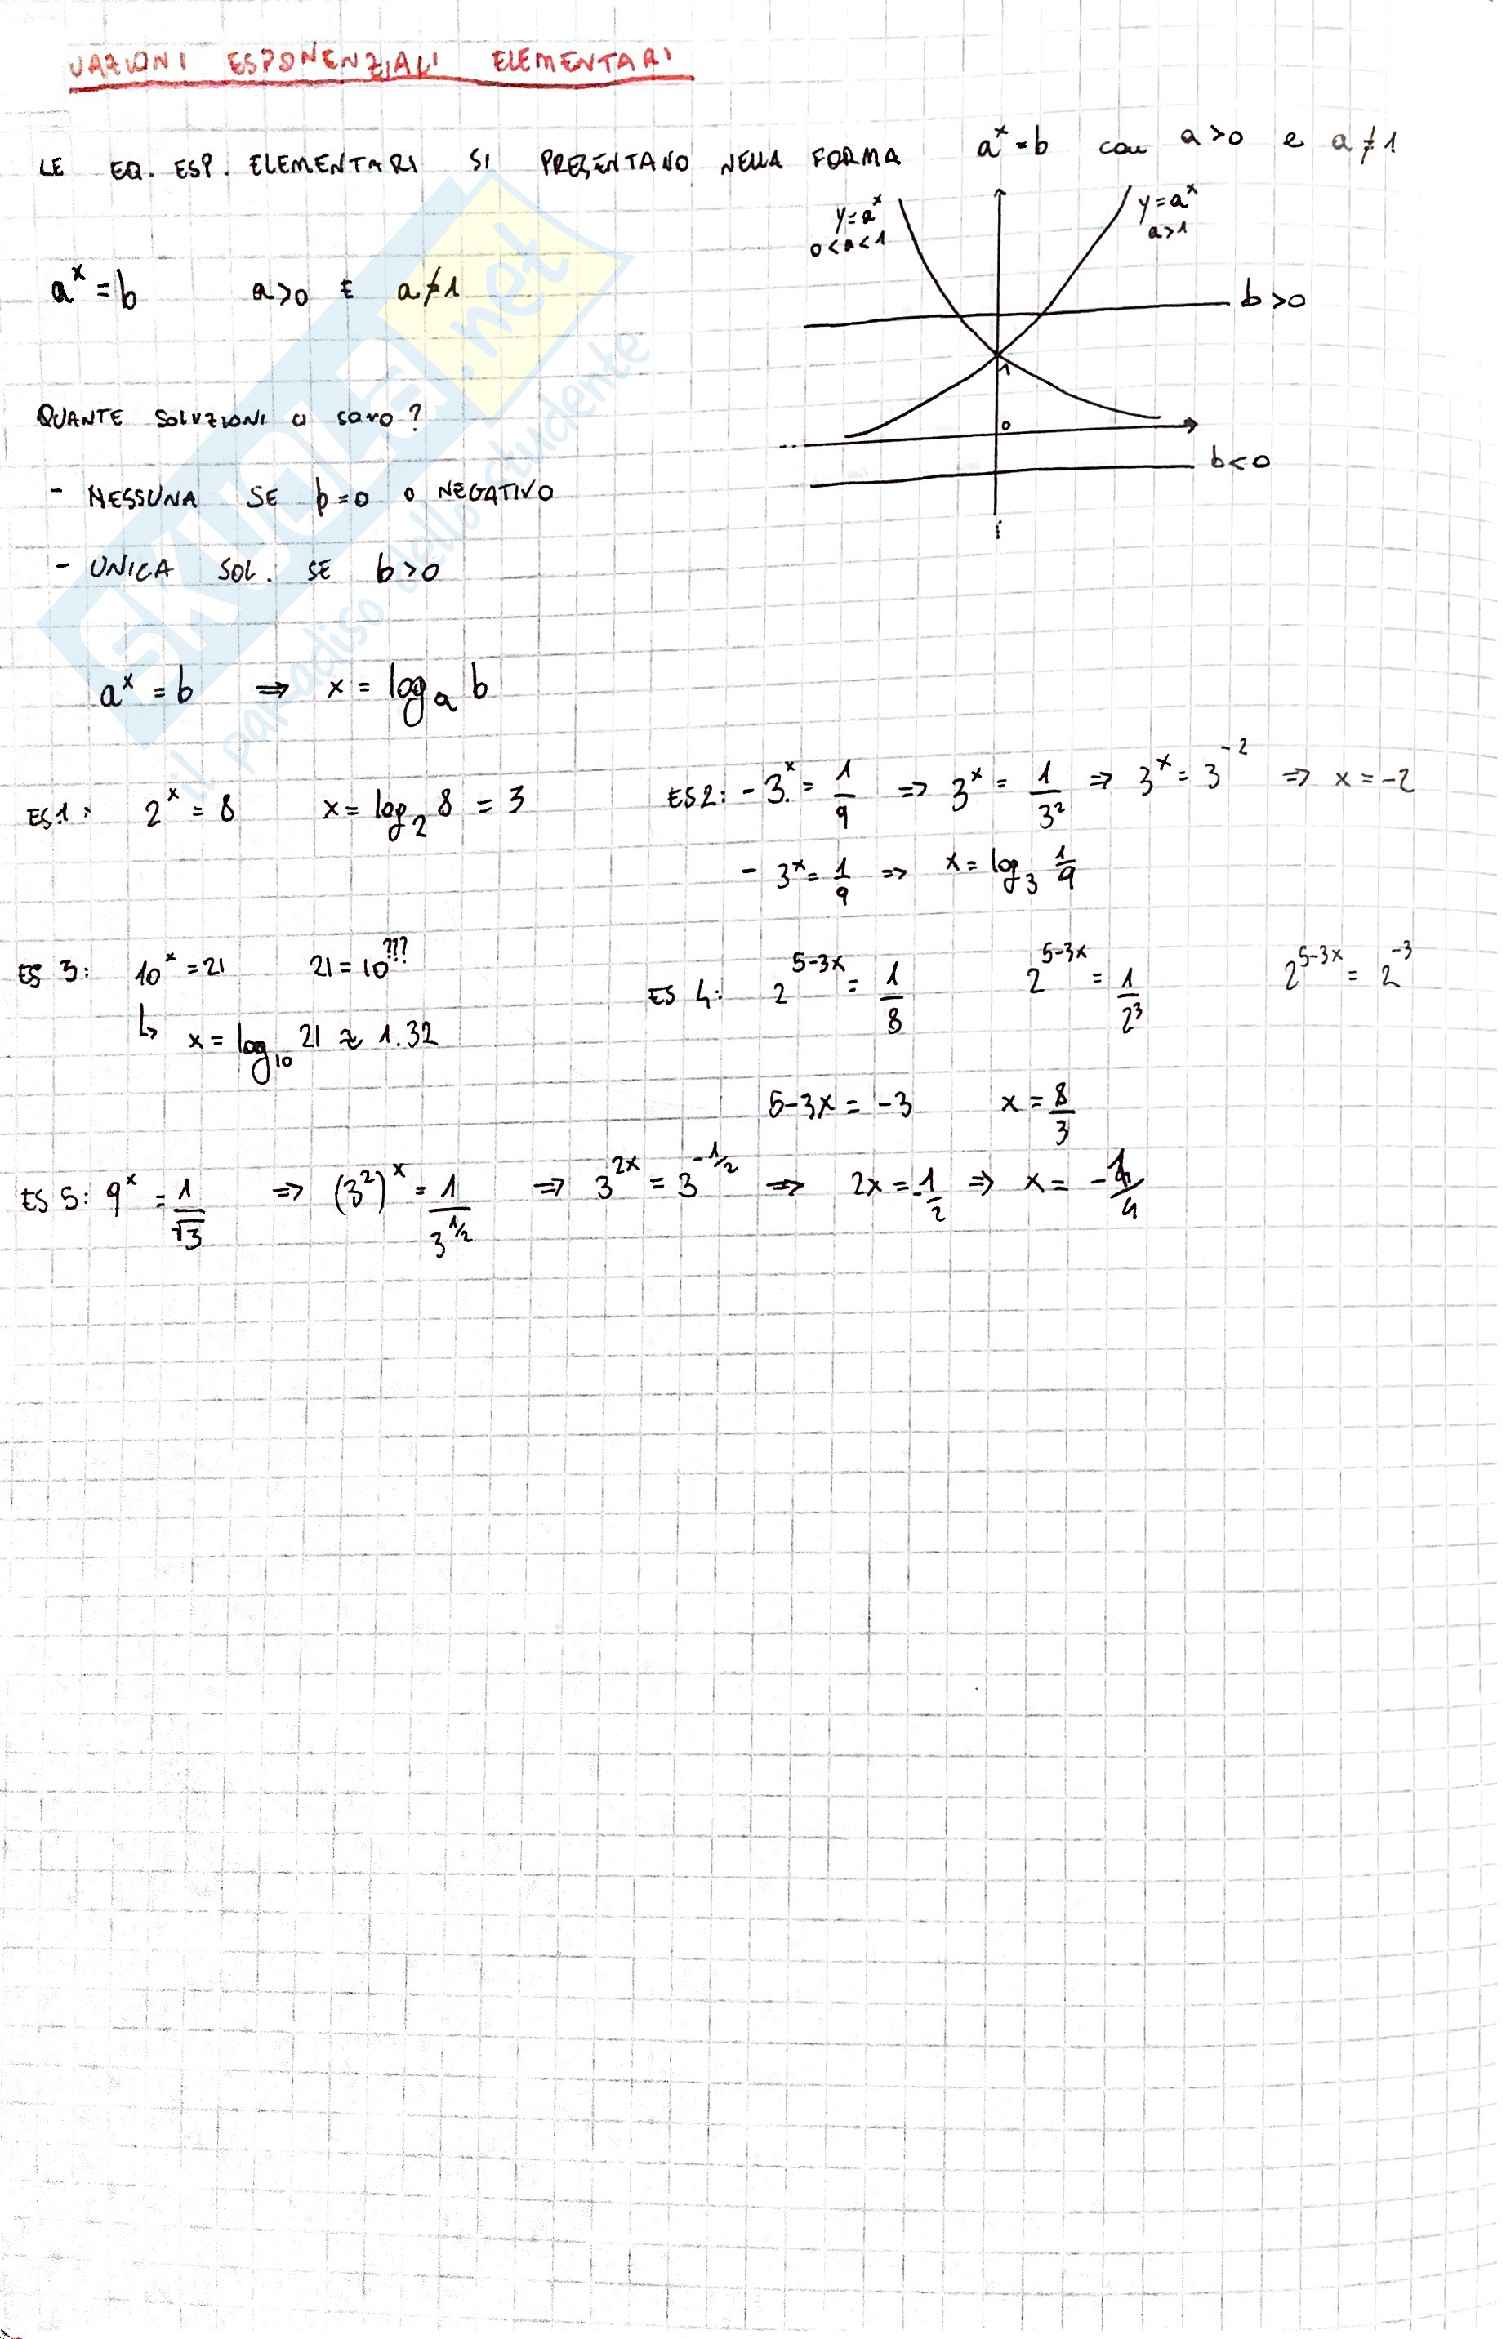 UAZIONI ESPONENZIALI ELEMENTARI
LE EQ. ESP. ELEMENTARI SI PRESENTANO NELLA FORMA a^x = b con a>0 e a≠1
y=a^x
0<a<1
y=a^x
a>1
a^x = b a>0 E a≠1
b>0
1
0
b<0
QUANTE SOLUZIONI CI SONO?
- NESSUNA SE b=0 O NEGATIVO
- UNICA SOL. SE b>0
a^x = b ⇒ x = log_a b
ES1: 2^x = 8 x = log_2 8 = 3
ES2: - 3^x = 1/9 ⇒ 3^x = 1/3^2 ⇒ 3^x = 3^-2 ⇒ x = -2
- 3^x = 1/9 ⇒ x = log_3 1/9
ES 3: 10^x = 21 21 = 10^???
↳ x = log_10 21 ≈ 1.32
ES 4: 2^5-3x = 1/8 2^5-3x = 1/2^3 2^5-3x = 2^-3
5-3x = -3 x = 8/3
ES 5: 9^x = 1/√3 ⇒ (3^2)^x = 1/3^1/2 ⇒ 3^2x = 3^-1/2 ⇒ 2x = -1/2 ⇒ x = -1/4
SKUOLA.net
il paradiso dello studente